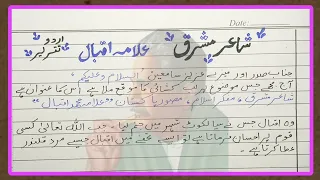 Date:
اردو تقریر
شاعرِ مشرق علامہ اقبال
جناب صدر اور میرے عزیز سامعین السلام وعلیکم!
آج مجھے جس موضوع پر لب کشائی کا موقع ملا ہے اس کا عنوان ہے
شاعرِ مشرق، مفکرِ اسلام، مصورِ پاکستان "علامہ محمد اقبال"
وہ اقبال جس نے سیالکوٹ شہر میں جنم لیا۔ جب اللہ تعالیٰ کسی
قوم پر احسان فرماتا ہے تو اسے اقبال جیسے مرد قلندر
عطا کرتا ہے۔